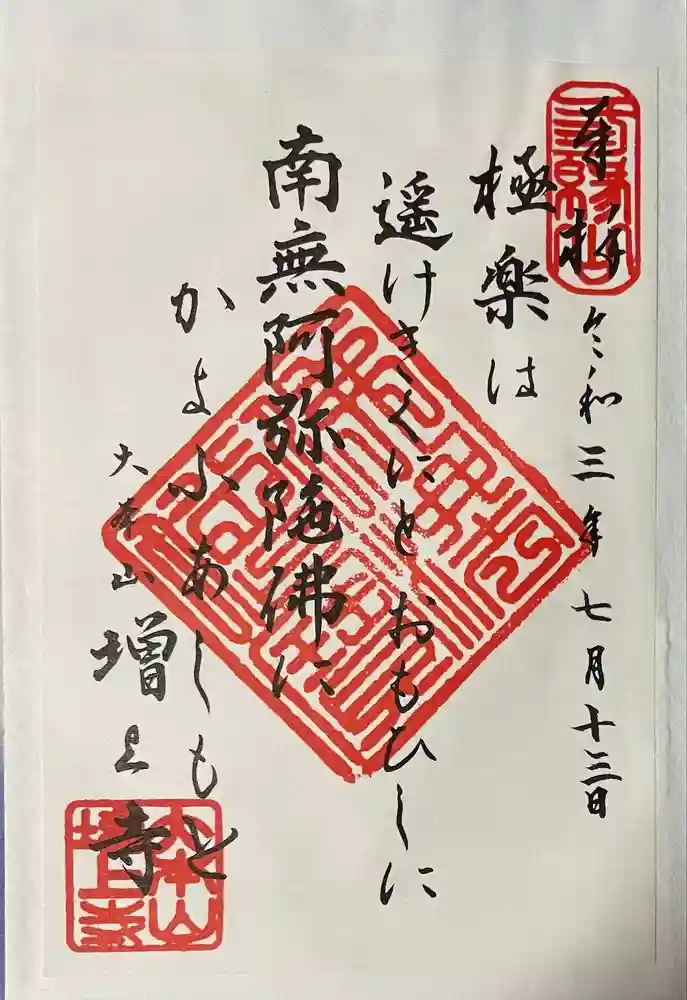 奉拝
令和三年七月十三日
極楽は
遥けきくにとおもひしに
南無阿弥陀佛に
かよふあしもと
大本山増上寺
大本山
増上寺